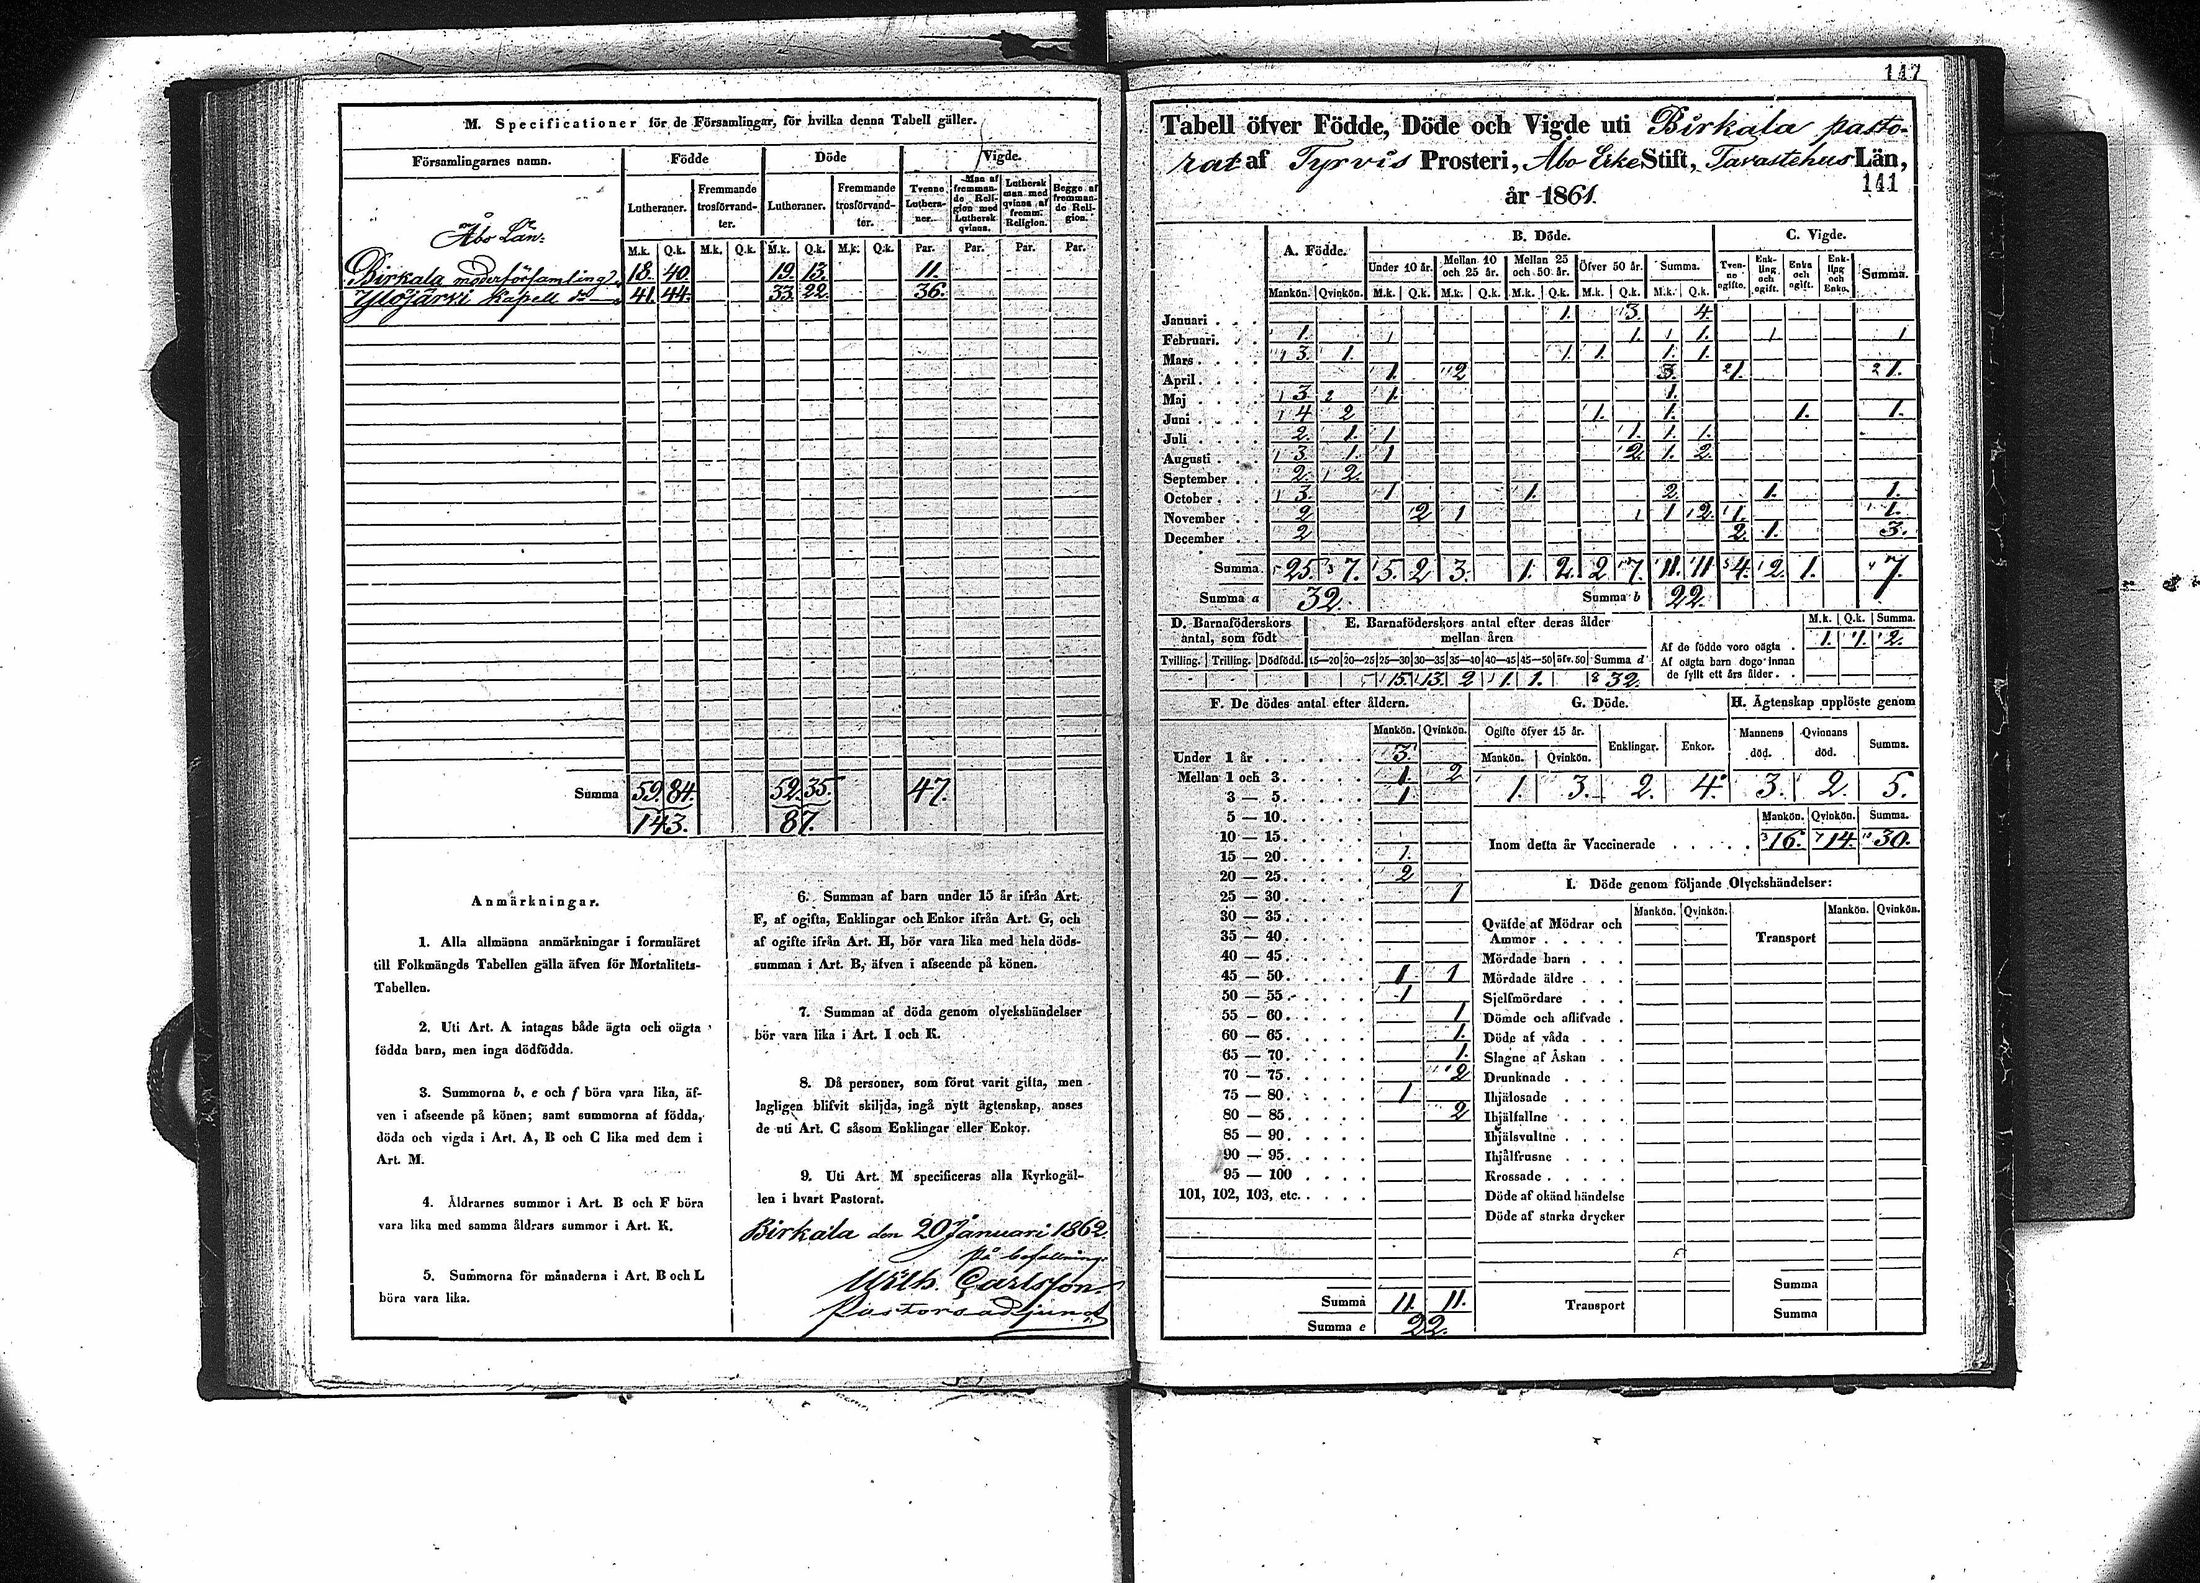 M. Specificationer för de Församlingar, för hvilka denna Tabell gäller.
Församlingarnes namn. Födde Döde Vigde.
Lutheraner. Fremmande trosförvandter. Lutheraner. Fremmande trosförvandter. Tvenne Lutheraner. Man af fremmande Religion med Luthersk qvinna. Luthersk man med qvinna af fremm. Religion. Begge af fremmande Religion.
M.k. Q.k. M.k. Q.k. M.k. Q.k. M.k. Q.k. Par. Par. Par. Par.
Åbo Län:
Birkala moderförsamling 18. 40. 19. 13. 11.
Ylöjärvi Kapell 41. 44. 33. 22. 36.
Summa 59. 84. 52. 35. 47.
143. 87.
Anmärkningar.
1. Alla allmänna anmärkningar i formuläret
till Folkmängds Tabellen gälla äfven för Mortalitets-
Tabellen.
2. Uti Art. A intagas både ägta och oägta
födda barn, men inga dödfödda.
3. Summorna b, e och f böra vara lika, äf-
ven i afseende på könen; samt summorna af födda,
döda och vigda i Art. A, B och C lika med dem i
Art. M.
4. Åldrarnes summor i Art. B och F böra
vara lika med samma åldrars summor i Art. K.
5. Summorna för månaderna i Art. B och L
böra vara lika.
6. Summan af barn under 15 år ifrån Art.
F, af ogifta, Enklingar och Enkor ifrån Art. G, och
af ogifte ifrån Art. H, bör vara lika med hela döds-
summan i Art. B, äfven i afseende på könen.
7. Summan af döda genom olyckshändelser
bör vara lika i Art. I och K.
8. Då personer, som förut varit gifta, men
lagligen blifvit skiljda, ingå nytt ägtenskap, anses
de uti Art. C såsom Enklingar eller Enkor.
9. Uti Art. M specificeras alla Kyrkogäl-
len i hvart Pastorat.
Birkala den 20 Januari 1862.
På befallning:
Wilh. Carlsson.
Pastorsadjunct
147
Tabell öfver Födde, Döde och Vigde uti Birkala pasto-
rat af Tyrvis Prosteri, Åbo Erke Stift, Tavastehus Län,
år 1861.
141
A. Födde. B. Döde. C. Vigde.
Under 10 år. Mellan 10 och 25 år. Mellan 25 och 50 år. Öfver 50 år. Summa. Tvenne ogifte. Enkling och ogift. Enka och ogift. Enkling och Enka. Summa.
Mankön. Qvinkön. M.k. Q.k. M.k. Q.k. M.k. Q.k. M.k. Q.k. M.k. Q.k.
Januari 1. 3. 4
Februari. 1. 1 1. 1 1. 1 1
Mars 3. 1. 1. 1. 1. 1.
April. 1. 2 3. 1. 1.
Maj 3. 2 1. 1.
Juni 4 2 1. 1. 1. 1.
Juli 2. 1. 1 1. 1. 1.
Augusti 3. 1. 1 2. 1. 2.
September 2. 2.
October 3. 1 1. 2. 1. 1.
November 2 2 1 1 2. 1. 1.
December 2 2. 1. 3.
Summa. 25. 7. 5. 2. 3. 1. 2. 2. 7. 11. 11 4. 2. 1. 7.
Summa a 32. Summa b 22.
D. Barnaföderskors antal, som födt
E. Barnaföderskors antal efter deras ålder mellan åren
M.k. Q.k. Summa.
Af de födde voro oägta 1. 1. 2.
Af oägta barn dogo innan
de fyllt ett års ålder.
Tvilling. Trilling. Dödfödd. 15—20 20—25 25—30 30—35 35—40 40—45 45—50 öfv.50 Summa d
15. 13. 2 1. 1. 32.
F. De dödes antal efter åldern.
Mankön. Qvinkön.
Under 1 år 3.
Mellan 1 och 3. 1. 2
3 — 5. 1
5 — 10.
10 — 15.
15 — 20. 1.
20 — 25. 2
25 — 30. 1
30 — 35.
35 — 40.
40 — 45.
45 — 50. 1 1
50 — 55. 1
55 — 60. 1
60 — 65. 1.
65 — 70. 1.
70 — 75. 2
75 — 80. 1
80 — 85. 2
85 — 90.
90 — 95.
95 — 100
101, 102, 103, etc.
Summa 11. 11.
Summa e 22.
G. Döde.
Ogifte öfver 15 år. Enklingar. Enkor.
Mankön. Qvinkön.
1. 3. 2. 4.
H. Ägtenskap upplöste genom
Mannens död. Qvinnans död. Summa.
3. 2. 5.
Mankön. Qvinkön. Summa.
Inom detta år Vaccinerade 16. 14. 30.
I. Döde genom följande Olyckshändelser:
Mankön. Qvinkön. Mankön. Qvinkön.
Qväfde af Mödrar och
Ammor Transport
Mördade barn
Mördade äldre
Sjelfmördare
Dömde och aflifvade
Döde af våda
Slagne af Åskan
Drunknade
Ihjälosade
Ihjälfallne
Ihjälsvultne
Ihjälfrusne
Krossade
Döde af okänd händelse
Döde af starka drycker
Summa
Transport Summa